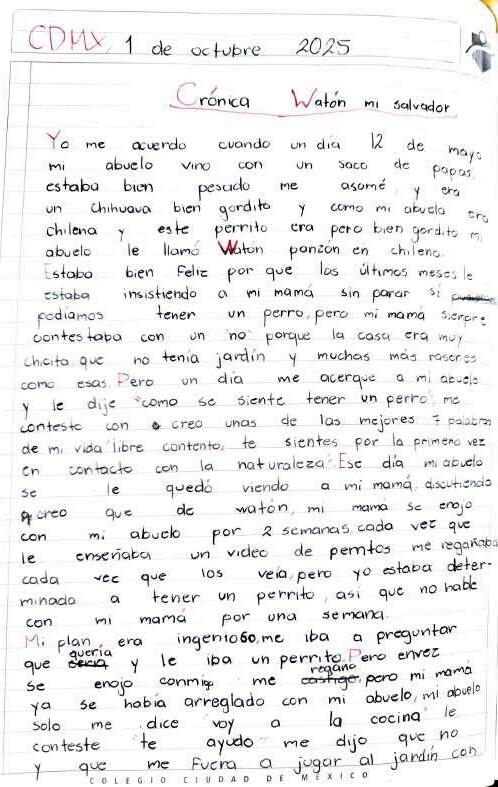 CDMX, 1 de octubre 2025
Crónica Watón mi salvador
Yo me acuerdo cuando un día 12 de mayo
mi abuelo vino con un saco de papas
estaba bien pesado me asomé y era
un chihuava bien gordito y como mi abuela era
chilena y este perrito era pero bien gordito mi
abuelo le llamó Waton panzón en chileno.
Estaba bien feliz por que los últimos meses le
estaba insistiendo a mi mamá sin parar si
podíamos tener un perro, pero mi mamá siempre
contestaba con un "no" porque la casa era muy
chicita que no tenía jardín y muchas más
como esas. Pero un día me acerque a mi abuelo
y le dije "como se siente tener un perro" me
contesto con creo unas de las mejores 7 palabras
de mi vida "libre contento, te sientes por la primera vez
en contacto con la naturaleza". Ese día mi abuelo
se le quedó viendo a mi mamá, discutiendo
creo que de watón, mi mama se enojo
con mi abuelo por 2 semanas cada vez que
le enseñaba un video de perritos me regañaba
cada vec que los veía, pero yo estaba deter-
minada a tener un perrito, asi que no hable
con mi mamá por una semana.
Mi plan, era ingenioso, me iba a preguntar
que quería y le iba un perrito. Pero envez
se enojo conmigo me regaño, pero mi mamá
ya se había arreglado con mi abuelo, mi abuelo
solo me dice voy a la cocina le
conteste "te ayudo" me dijo que no
y que me fuera a jugar al jardín con
COLEGIO CIUDAD DE MÉXICO